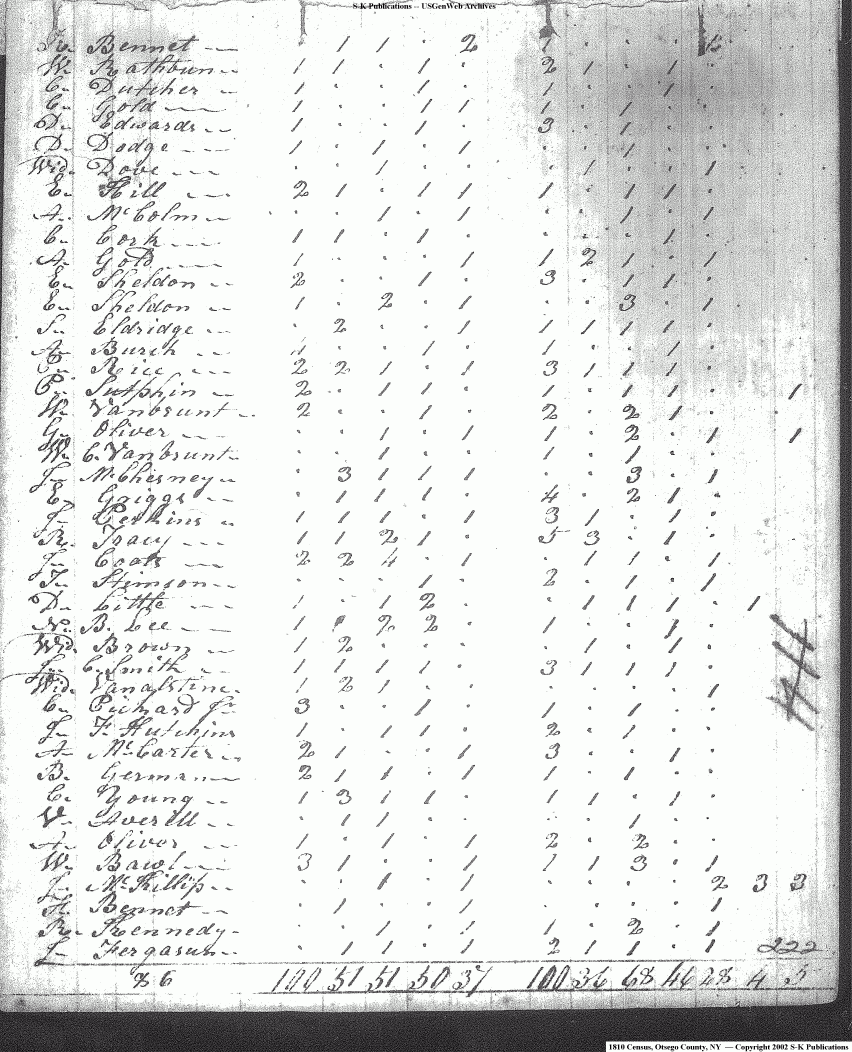 S-K Publications -- USGenWeb Archives
Bennet -- · 1 1 · 2 1 · · · ·
W. Rathbun -- 1 1 · 1 · 2 1 · 1 ·
C. Dutcher -- 1 · · 1 · 1 · 1 1 ·
C. Gold --- 1 · · 1 1 1 · 1 · ·
D. Edwards -- 1 · · 1 · 3 · 1 · ·
D. Dodge --- 1 · 1 · 1 · · 1 · ·
Wid. Dove --- · · 1 · · · 1 · · 1
E. Hill --- 2 1 · 1 1 1 · 1 1 ·
A. McColm -- · · 1 · 1 · · 1 · 1
C. Cork --- 1 1 · 1 · · · · 1 ·
A. Gold --- 1 · · · 1 1 2 1 · 1
E. Sheldon -- 2 · · 1 · 3 · 1 1 ·
E. Sheldon -- 1 · 2 · 1 · · 3 · 1
S. Eldridge -- · 2 · · 1 1 1 1 1 ·
A. Burch --- 1 · · 1 · 1 · · 1 ·
Rice --- 2 2 1 · 1 3 1 1 · ·
Sutphin -- 2 · 1 1 · 1 · 1 1 · 1
W. Vanbrunt -- 2 · · 1 · 2 · 2 1 ·
G. Oliver --- · · 1 · 1 1 · 2 · 1 1
W. C. Vanbrunt - · · 1 · · 1 · 1 · ·
J. McChesney -- · 3 1 1 1 · · 3 · 1
E. Griggs -- · 1 1 1 · 4 · 2 1 ·
J. Perkins -- 1 1 1 · 1 3 1 · 1 ·
R. Tracy --- 1 1 2 1 · 5 3 · · ·
J. Coats --- 2 2 4 · 1 · 1 1 · 1
J. Stimson -- · · · 1 · 2 · 1 · 1
D. Little --- 1 · 1 2 · · 1 1 1 · 1
N. B. Lee --- 1 · 2 2 · 1 · · 1 ·
Wid. Brown -- 1 2 · · · · 1 · 1 ·
J. C. Smith -- 1 1 1 1 · 3 1 1 1 ·
Wid. Vanalstine. 1 2 1 · · · · · · 1
C. Pickard Jr. 3 · · 1 · 1 · 1 · ·
J. F. Hutchins 1 · 1 1 · 2 · 1 · ·
A. McCarter -- 2 1 · · 1 3 · · 1 ·
B. German -- 2 1 1 · 1 1 · 1 · ·
C. Young -- 1 3 1 1 · 1 1 · 1 ·
V. Averell -- · 1 1 · · · · 1 · ·
A. Oliver -- 1 · 1 · 1 2 · 2 · ·
W. Bawl --- 3 1 · · 1 1 1 3 · 1
J. McKillip -- · · 1 · 1 · · · · 2 3 3
H. Bennet --- · 1 · · 1 · · · · 1
R. Kennedy - · · 1 · 1 1 · 2 · 1
J. Fergasun -- · 1 1 · 1 2 1 1 · 1 222
100 51 51 50 37 100 36 68 46 28 4 5
1810 Census, Otsego County, NY — Copyright 2002 S-K Publications